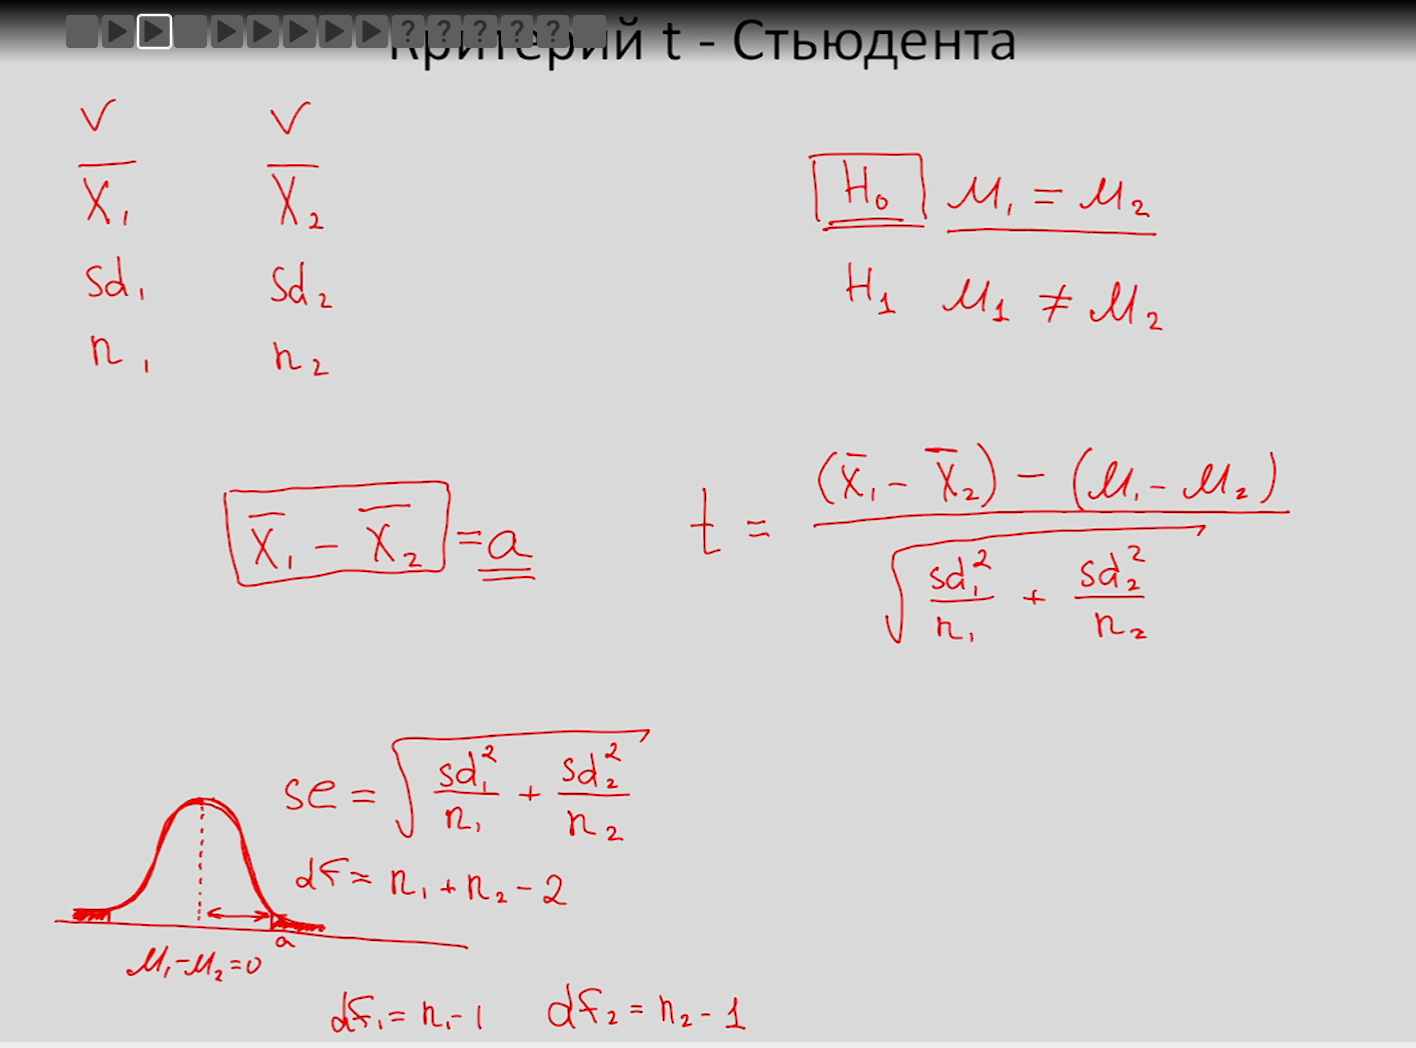 Критерий t - Стьюдента
V V
X̄₁ X̄₂
sd₁ sd₂
n₁ n₂
H₀ M₁ = M₂
H₁ M₁ ≠ M₂
X̄₁ - X̄₂ = a
t = (X̄₁ - X̄₂) - (M₁ - M₂) / √(sd₁²/n₁ + sd₂²/n₂)
se = √(sd₁²/n₁ + sd₂²/n₂)
df = n₁ + n₂ - 2
a
M₁ - M₂ = 0
df₁ = n₁ - 1 df₂ = n₂ - 1